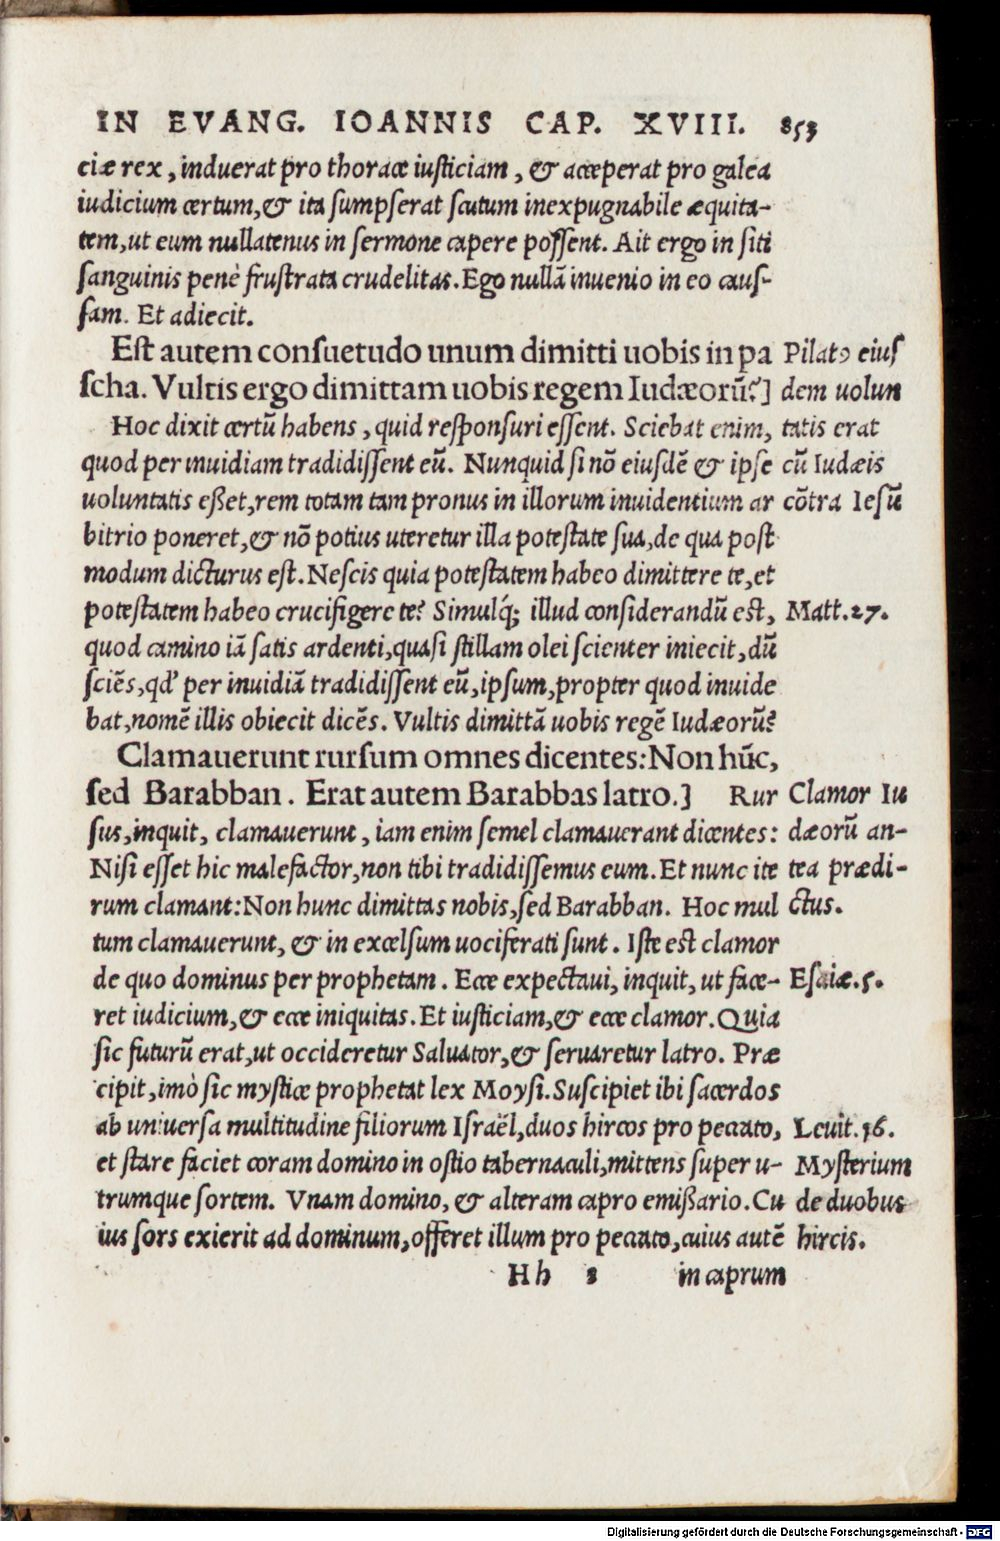 IN EVANG. IOANNIS CAP. XVIII. 853
ciæ rex, induerat pro thorace iusticiam, & acceperat pro galea
iudicium certum, & ita sumpserat scutum inexpugnabile æquita-
tem, ut eum nullatenus in sermone capere possent. Ait ergo in siti
sanguinis penè frustrata crudelitas. Ego nullã inuenio in eo caus-
sam. Et adiecit.
Est autem consuetudo unum dimitti uobis in pa
scha. Vultis ergo dimittam uobis regem Iudæorũ?]
Pilatꝰ eius
dem uolun
tatis erat
cũ Iudæis
cõtra Iesũ
Hoc dixit certũ habens, quid responsuri essent. Sciebat enim,
quod per inuidiam tradidissent eũ. Nunquid si nõ eiusdẽ & ipse
uoluntatis eßet, rem totam tam pronus in illorum inuidentium ar
bitrio poneret, & nõ potius uteretur illa potestate sua, de qua post
modum dicturus est. Nescis quia potestatem habeo dimittere te, et
potestatem habeo crucifigere te? Simulq́; illud considerandũ est,
Matt. 27.
quod camino iã satis ardenti, quasi stillam olei scienter iniecit, dũ
sciẽs, qd' per inuidiã tradidissent eũ, ipsum, propter quod inuide
bat, nomẽ illis obiecit dicẽs. Vultis dimittã uobis regẽ Iudæorũ?
Clamauerunt rursum omnes dicentes: Non hũc,
sed Barabban. Erat autem Barabbas latro.] Rur
Clamor Iu
dæorũ an-
tea prædi-
ctus.
sus, inquit, clamauerunt, iam enim semel clamauerant dicentes:
Nisi esset hic malefactor, non tibi tradidissemus eum. Et nunc ite
rum clamant: Non hunc dimittas nobis, sed Barabban. Hoc mul
tum clamauerunt, & in excelsum uociferati sunt. Iste est clamor
de quo dominus per prophetam. Ecce expectaui, inquit, ut face-
Esaiæ. 5.
ret iudicium, & ecce iniquitas. Et iusticiam, & ecce clamor. Quia
sic futurũ erat, ut occideretur Saluator, & seruaretur latro. Præ
cipit, imò sic mysticæ prophetat lex Moysi. Suscipiet ibi sacerdos
ab uniuersa multitudine filiorum Israël, duos hircos pro peccato,
Leuit. 16.
et stare faciet coram domino in ostio tabernaculi, mittens super u-
Mysterium
de duobus
hircis.
trumque sortem. Vnam domino, & alteram capro emißario. Cu
ius sors exierit ad dominum, offeret illum pro peccato, cuius autẽ
Hh 3 in caprum
Digitalisierung gefördert durch die Deutsche Forschungsgemeinschaft - DFG